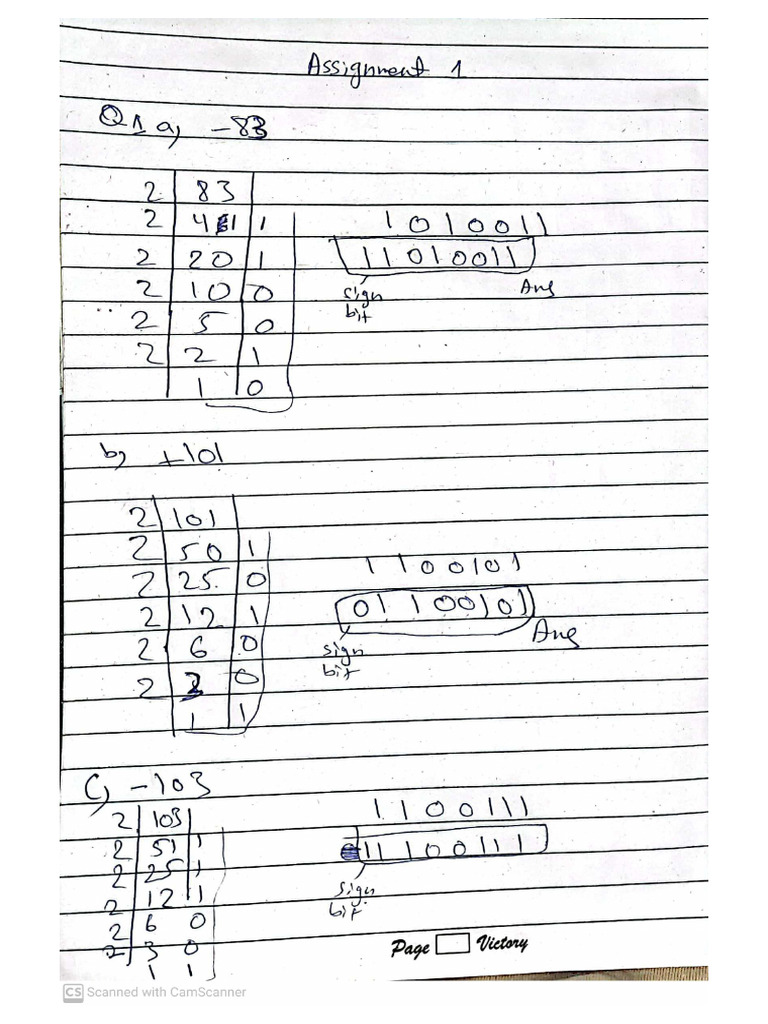 Assignment 1
Q1 a, -83
2 | 83
2 | 41 | 1
2 | 20 | 1
2 | 10 | 0
2 | 5 | 0
2 | 2 | 1
1 | 0
1010011
11010011
sign bit
Ans
b, +101
2 | 101
2 | 50 | 1
2 | 25 | 0
2 | 12 | 1
2 | 6 | 0
2 | 3 | 0
1 | 1
1100101
01100101
sign bit
Ans
C, -103
2 | 103
2 | 51 | 1
2 | 25 | 1
2 | 12 | 1
2 | 6 0
2 | 3 0
1 1
1100111
11100111
sign bit
Page Victory
CS Scanned with CamScanner